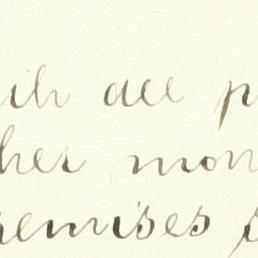 ith all p
ther mon
remises s